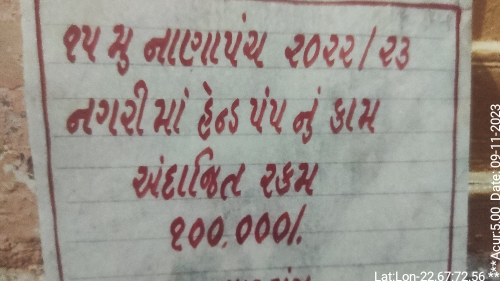 ૧૫ મુ નાણાપંચ ૨૦૨૨/૨૩
નગરી માં હેન્ડ પંપ નું કામ
અંદાજિત રકમ
૧૦૦.૦૦૦/.
Lat:Lon-22.67:72.56 ***Acur:5.00 Date: 09-11-2023